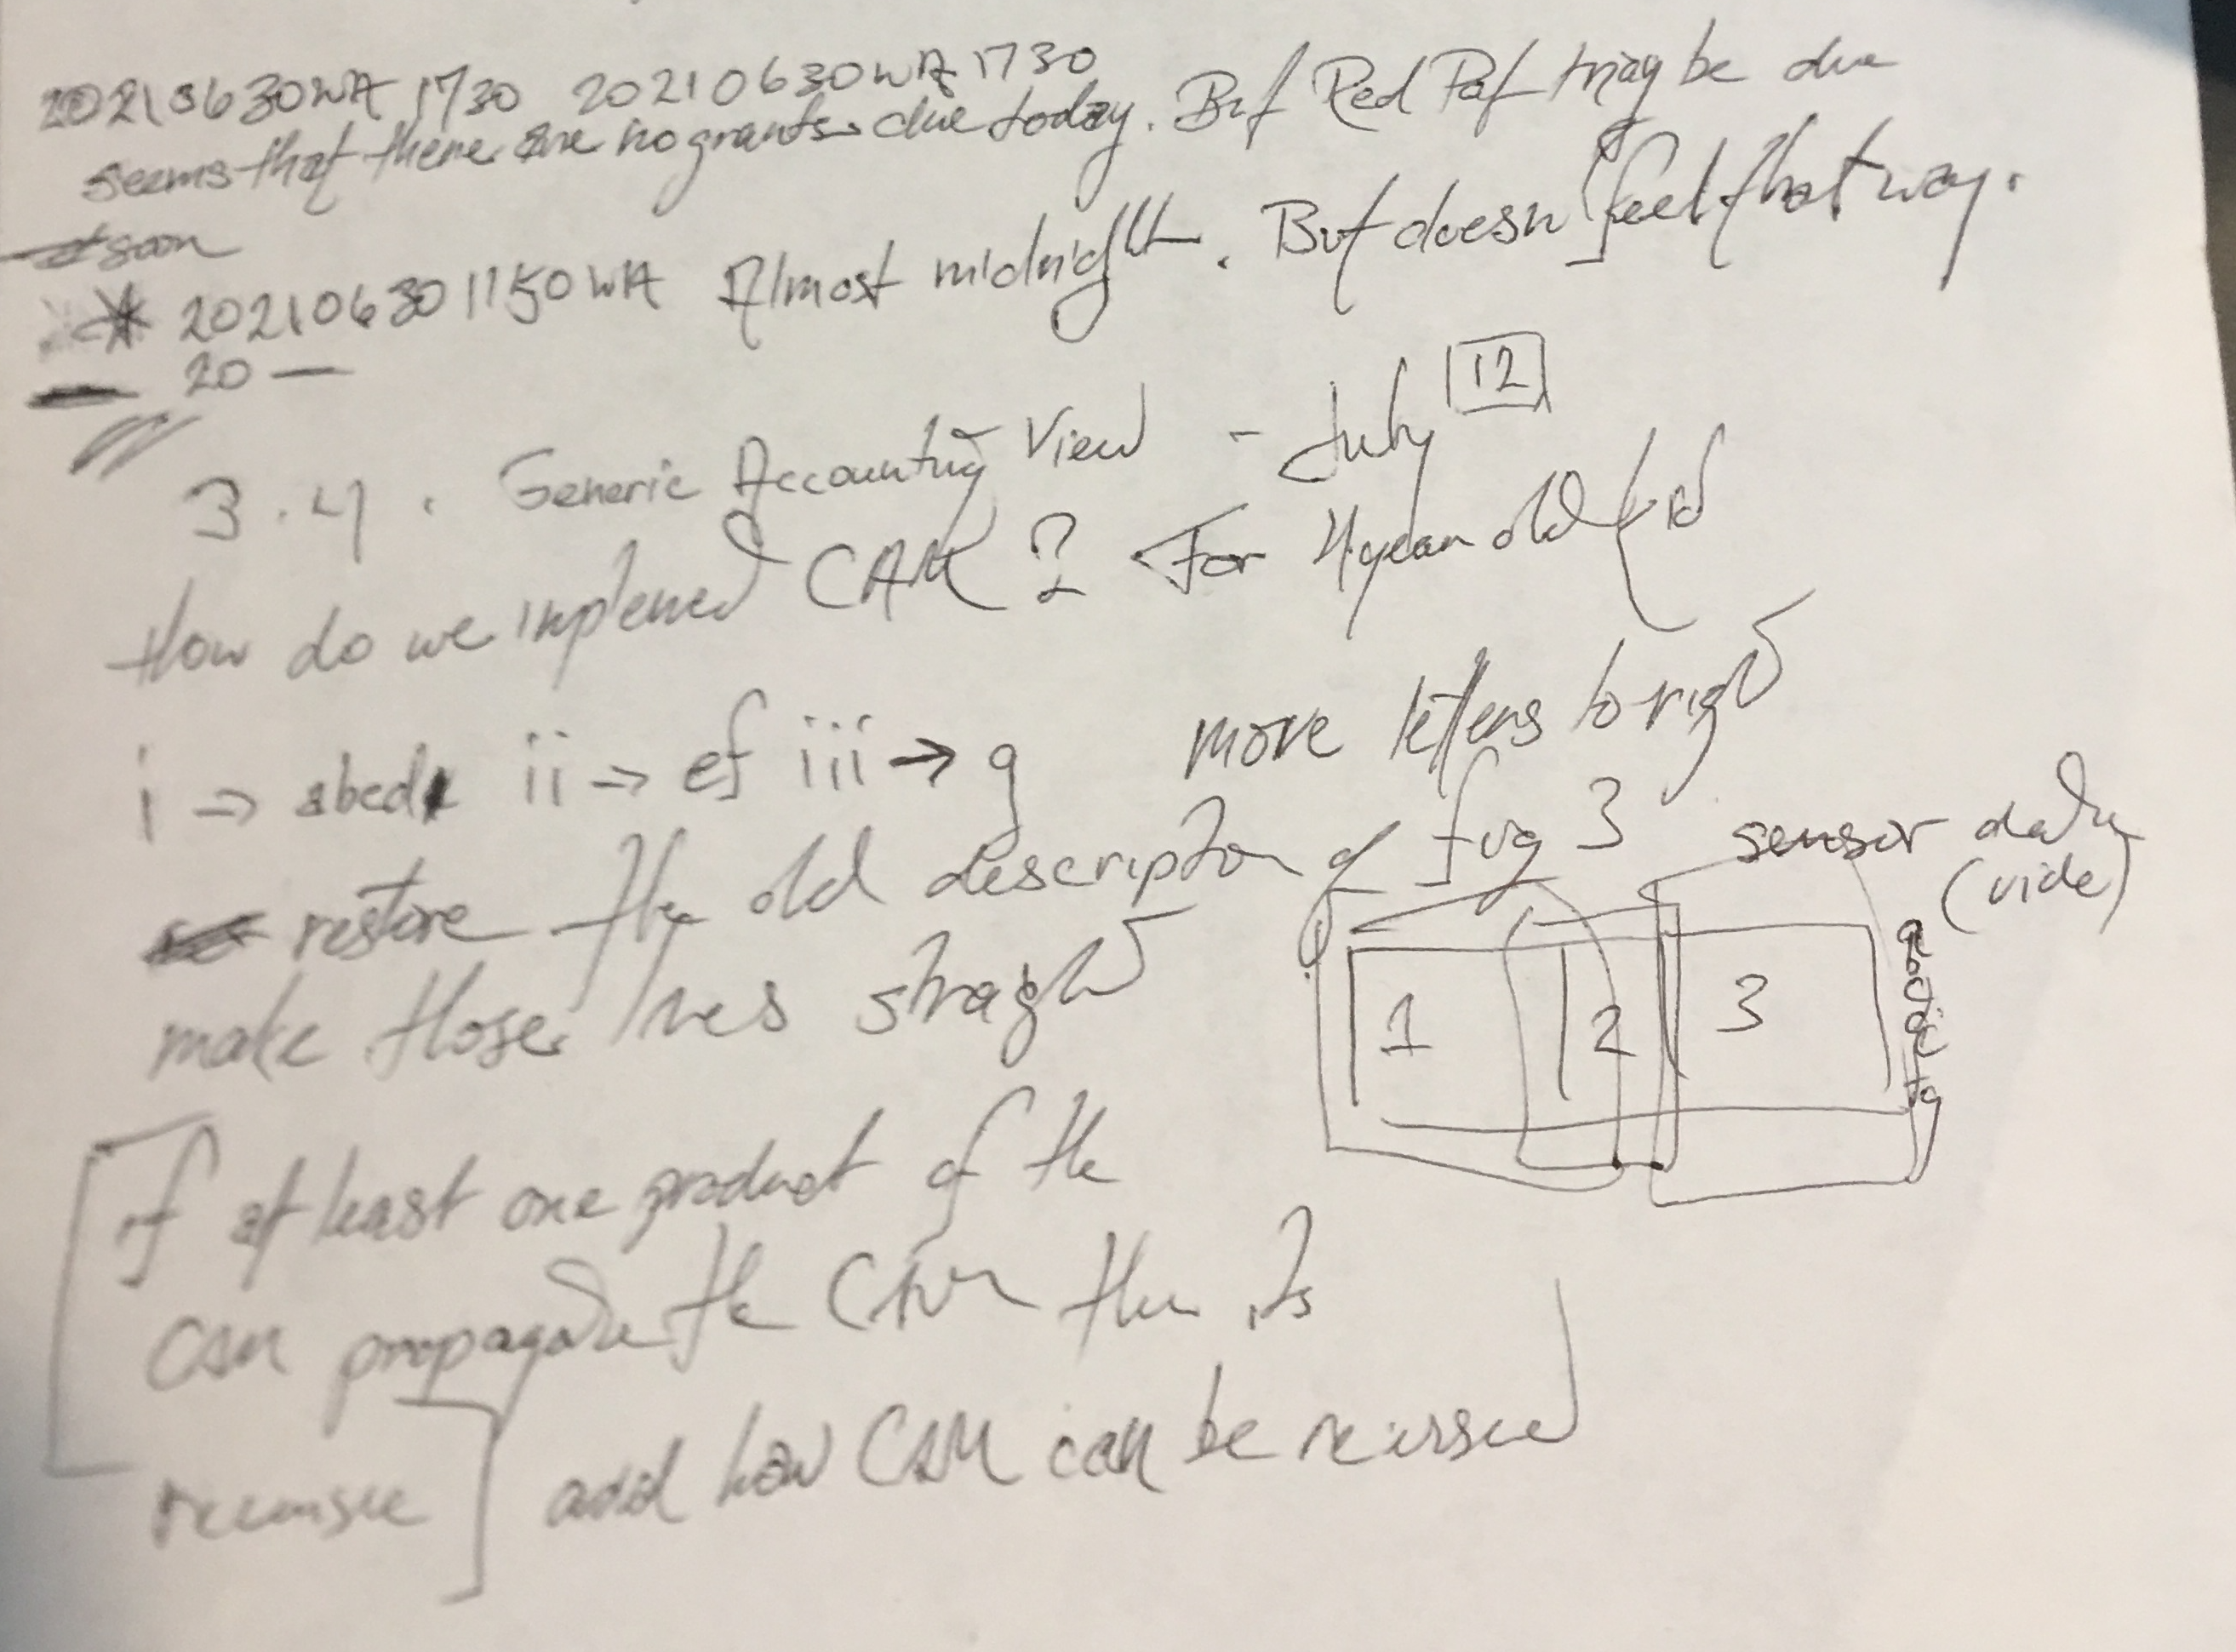 20210630WA 1730 20210630WA 1730
seems that there are no grants due today. But Red Paf may be due
soon
* 202106301150WA Almost midnight. But doesn feel that way.
20 —
3.4. Generic Accounting View - July 12
How do we implemed CAM? For 4 year old kid
i → abcd ii → ef iii → g move letters to right
restore the old description of fig 3 sensor data
(vide)
make those lines straight
1 2 3
[if at least one product of the
CAM propagate the CAM then its
recursive] add how CAM can be